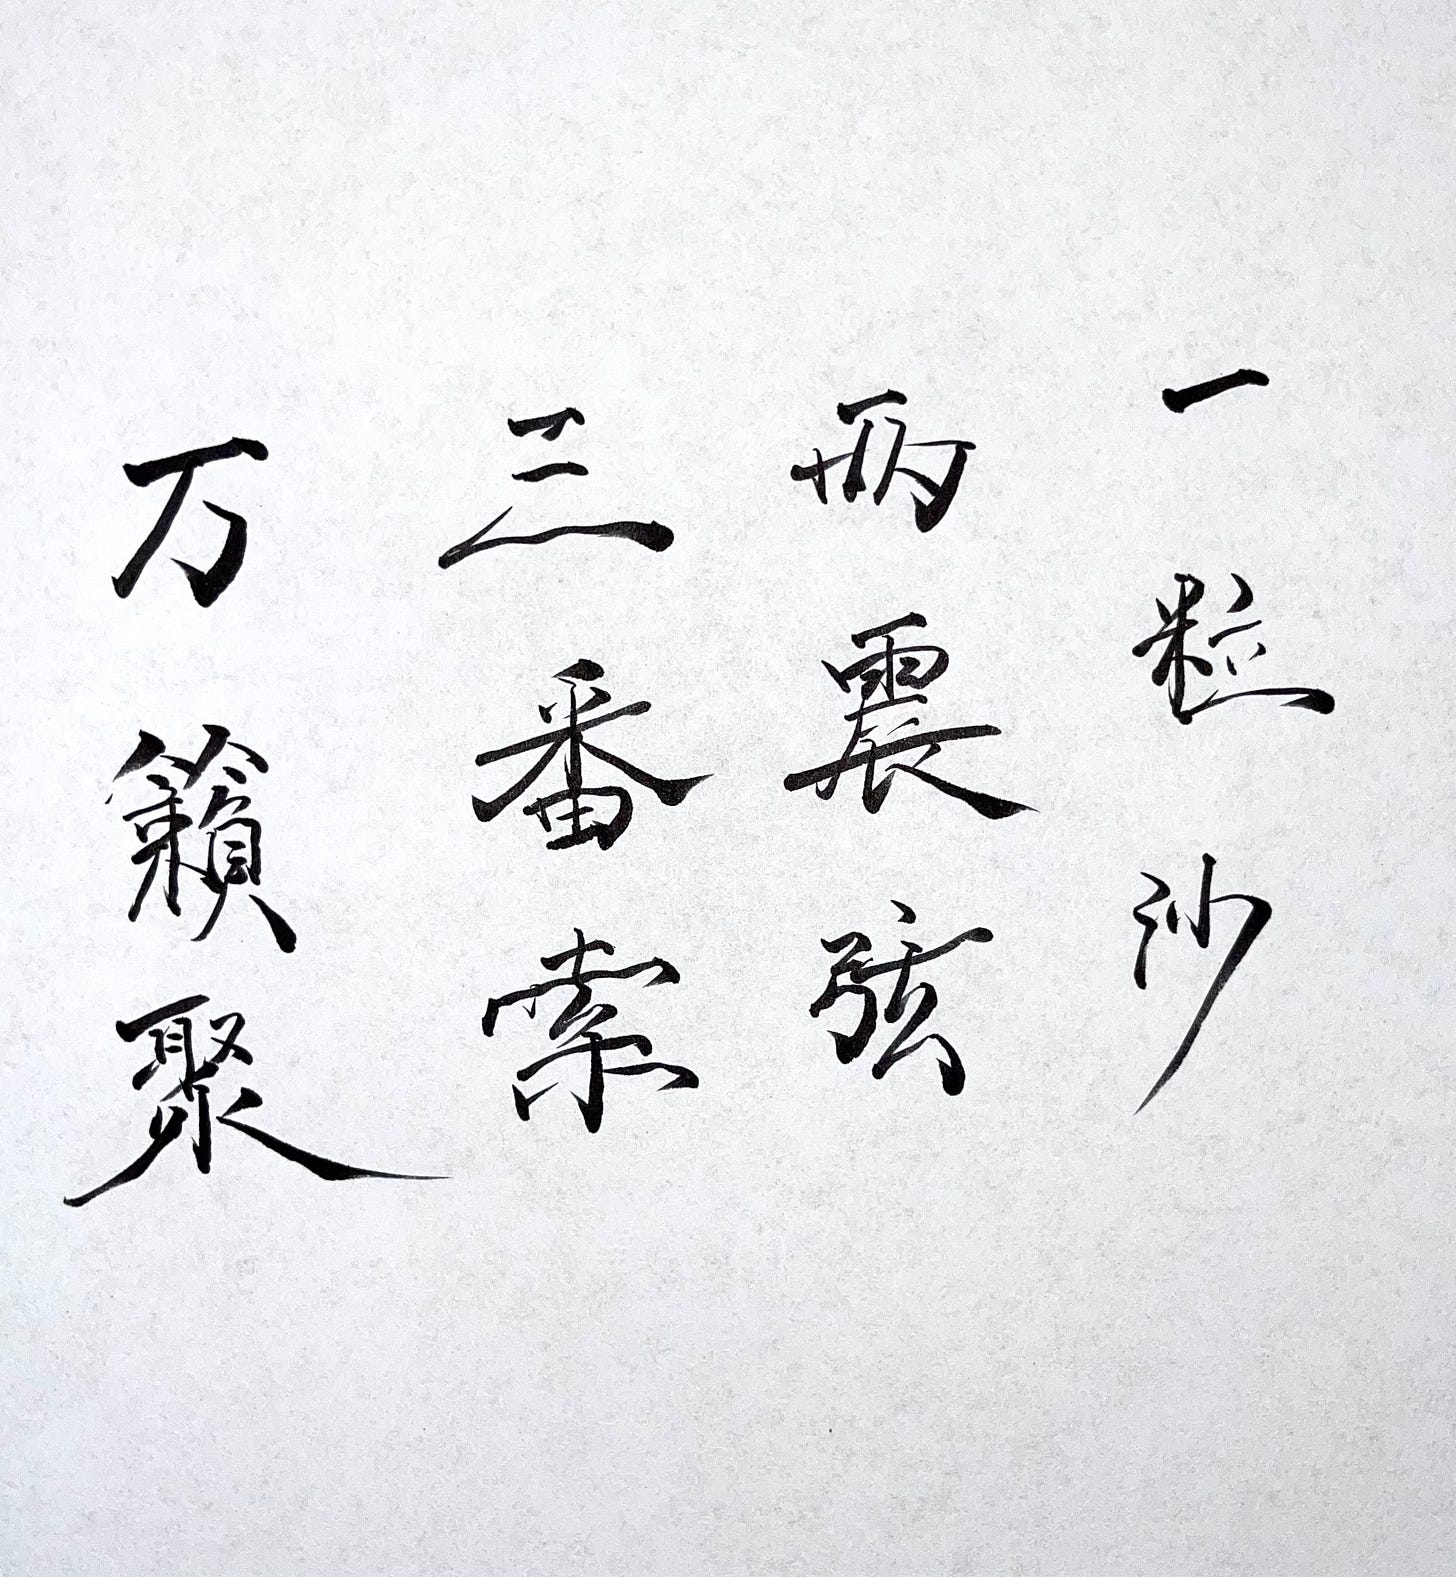 一粒沙
两震弦
三番索
万籟聚